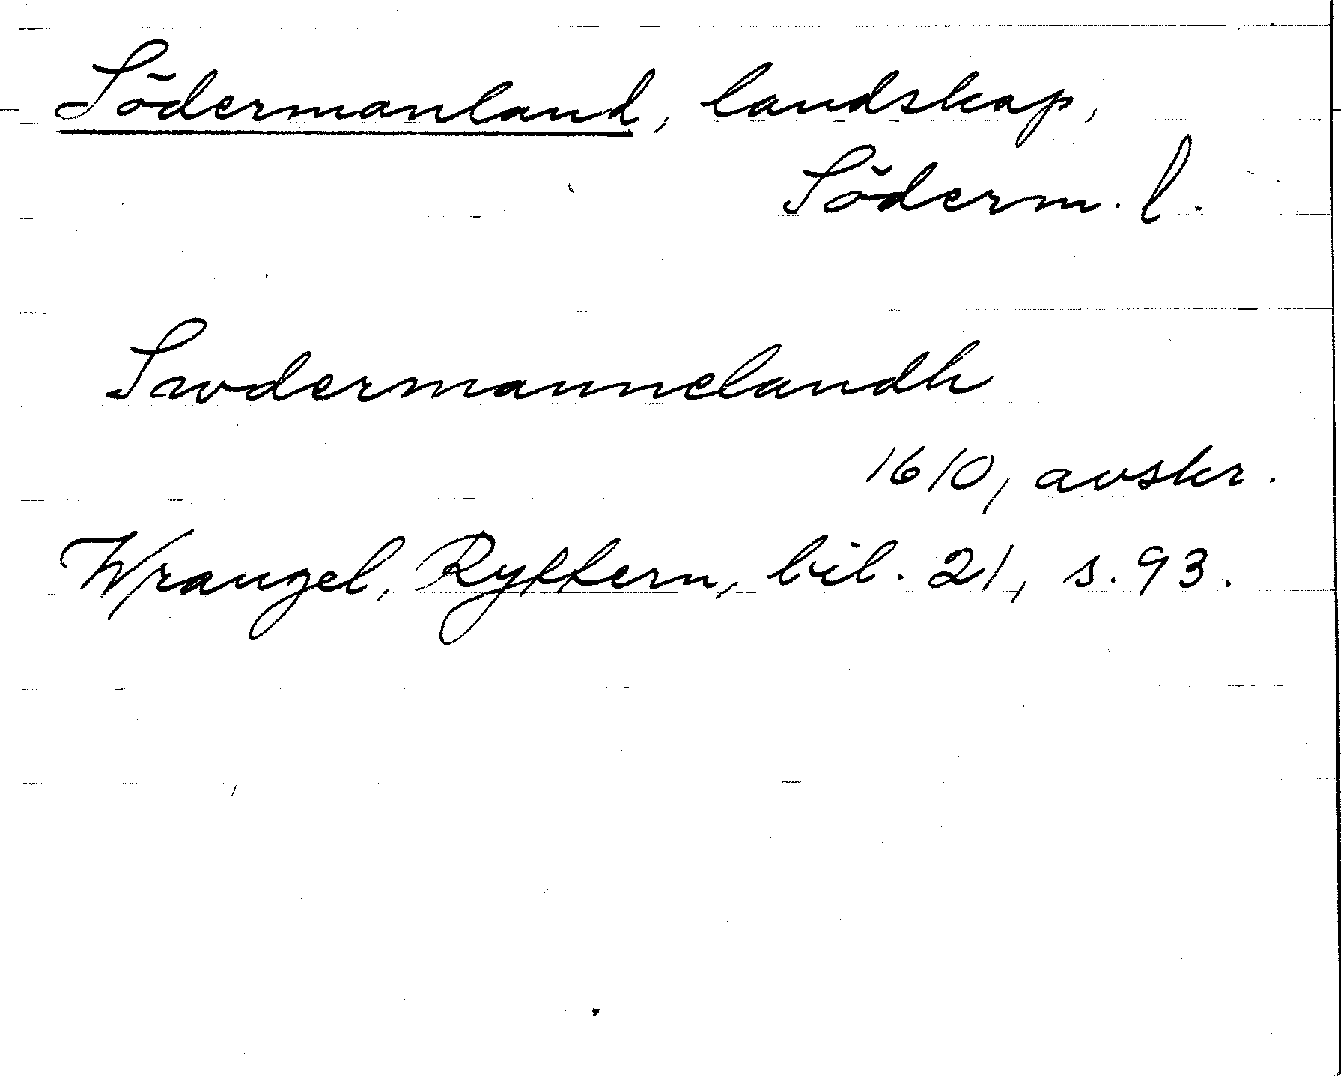 Södermanland, landskap,
Söderm. l.
Swdermannelandh
1610, avskr.
Wrangel, Ryttern, bil. 21, s. 93.